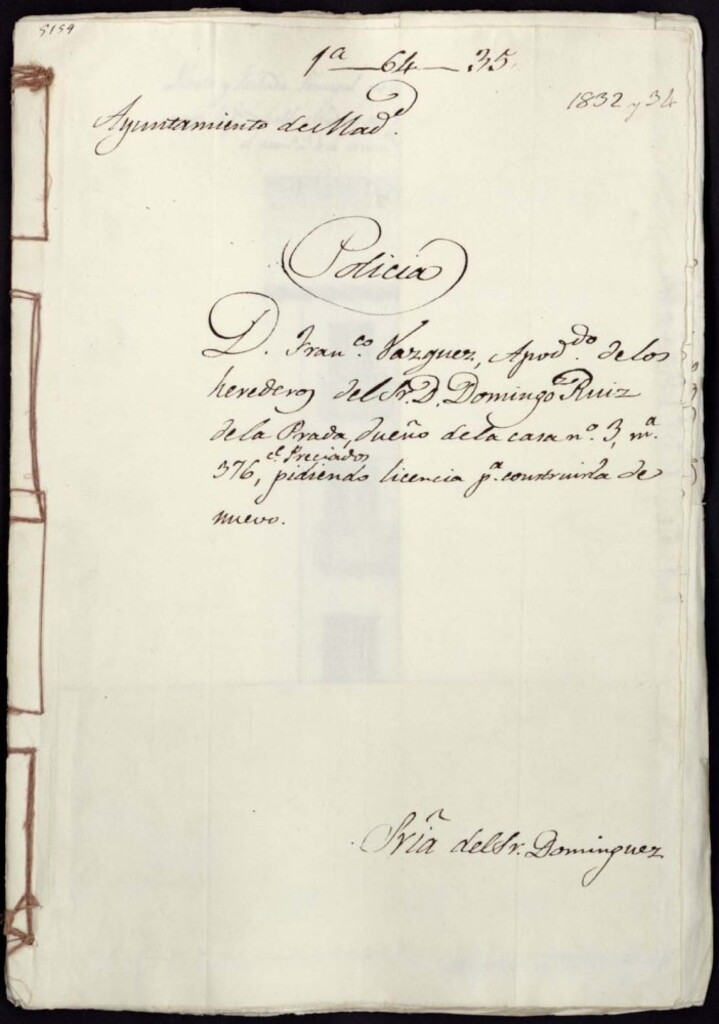 5159
1ª 64 35
1832 y 34
Ayuntamiento de Madᵈ.
Policia
D. Franᶜᵒ. Vazquez, Apodᵈᵒ. de los
herederos del Sr. D. Domingo Ruiz
de la Prada, dueño de la casa nº. 3, mª.
cᵉ. Preciados
376, pidiendo licencia pª. construirla de
nuevo.
Sriâ del Sr. Dominguez